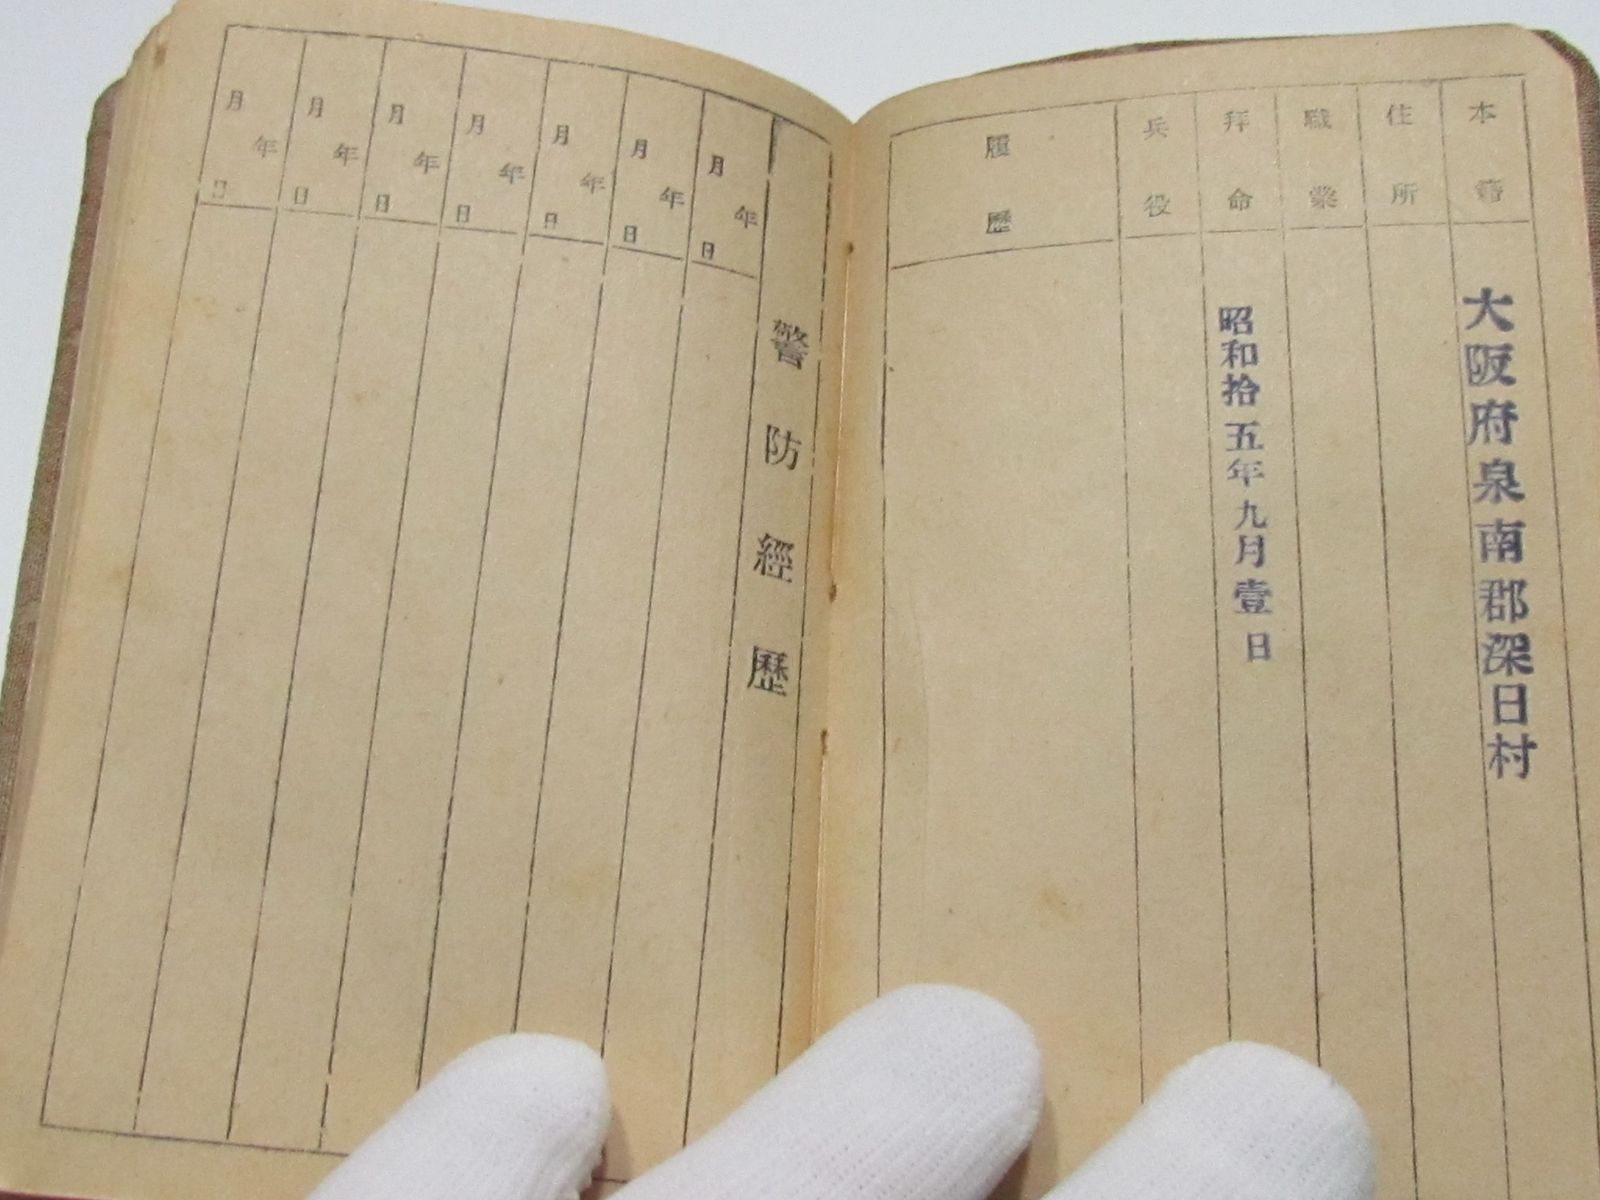 本籍
大阪府泉南郡深日村
住所
職業
拜命
昭和拾五年九月壹日
兵役
履歷
警防經歷
年月日
年月日
年月日
年月日
年月日
年月日
年月日